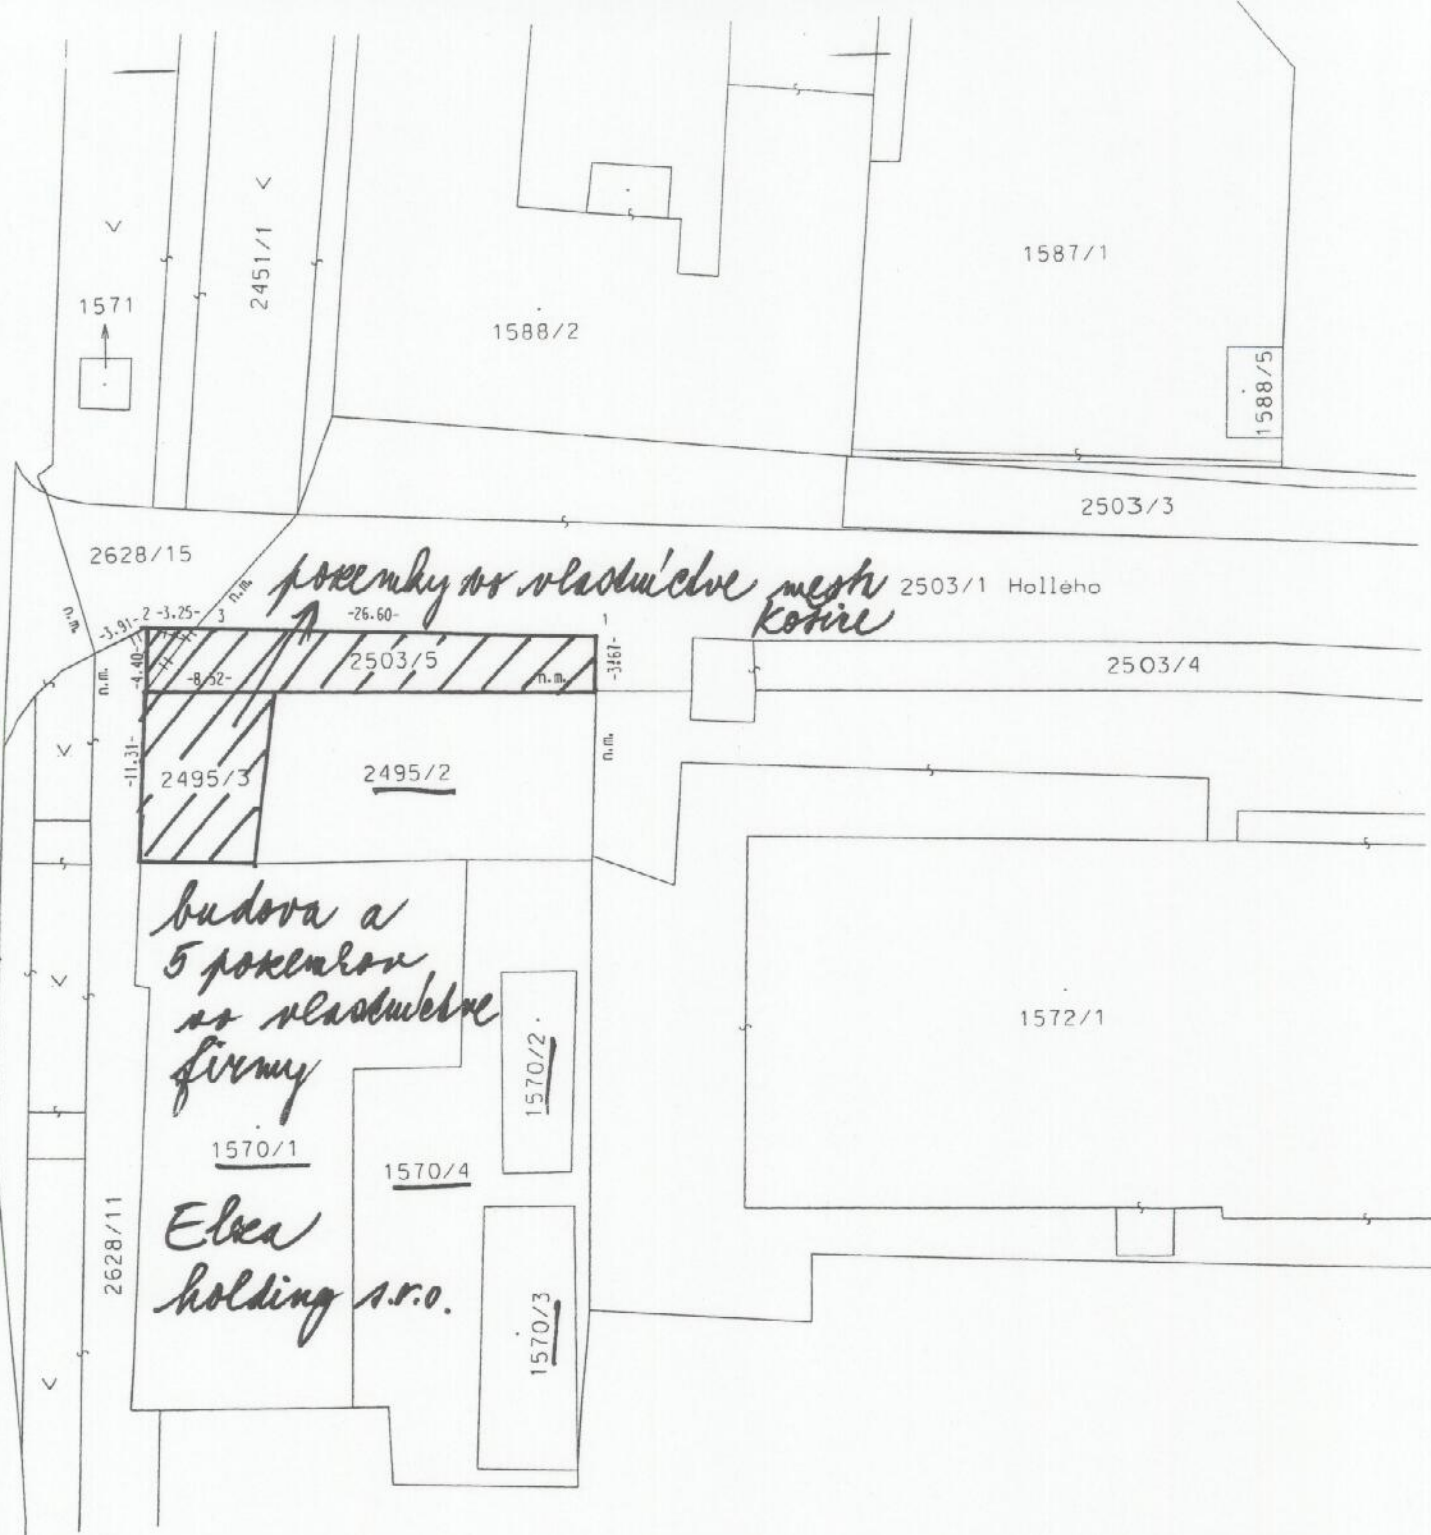 1571
2451/1
1588/2
1587/1
1588/5
2503/3
2628/15
n.m.
n.m.
pozemky vo vlastníctve mesta
Košice
2503/1 Hollého
-3.91-
2
-3.25-
3
-26.60-
1
-4.40-
-8.52-
2503/5
n.m.
-3.67-
2503/4
n.m.
n.m.
-11.31-
2495/3
2495/2
budova a
5 pozemkov
vo vlastníctve
firmy
1570/2
1572/1
1570/1
1570/4
Elzea
holding s.r.o.
2628/11
1570/3